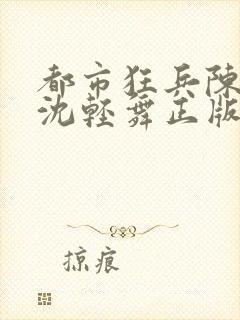 都市狂兵陳
沈輕舞正版
掠痕